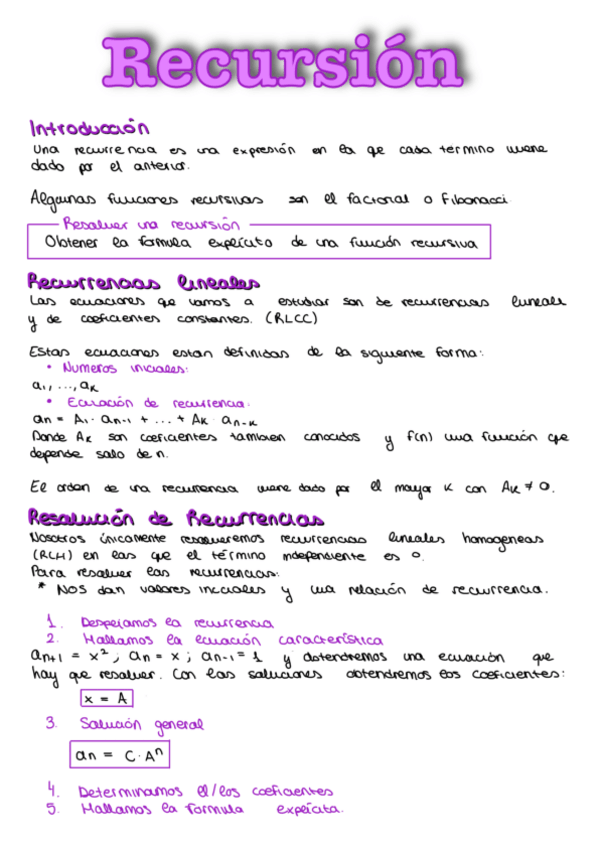 Recursión
Introducción
Una recurrencia es una expresión en la que cada termino viene
dado por el anterior.
Algunas funciones recursivas son el factorial o Fibonacci
Resolver una recursión
Obtener la formula explícita de una función recursiva
Recurrencias lineales
Las ecuaciones que vamos a estudiar son de recurrencias lineales
y de coeficientes constantes. (RLCC)
Estas ecuaciones estan definidas de la siguiente forma:
• Numeros iniciales:
a₁, ..., aₖ
• Ecuación de recurrencia:
an = A₁· an-1 + ... + Aₖ · an-k
Donde Aₖ son coeficientes tambien conocidos y f(n) una función que
depende solo de n.
El orden de una recurrencia viene dado por el mayor K con Aₖ ≠ 0.
Resolución de Recurrencias
Nosotros únicamente resolveremos recurrencias lineales homogeneas
(RLH) en las que el término independiente es 0.
Para resolver las recurrencias:
* Nos dan valores iniciales y una relación de recurrencia.
1. Despejamos la recurrencia
2. Hallamos la ecuación característica
an+1 = x² ; an = x ; an-1 = 1 y obtendremos una ecuación que
hay que resolver. Con las soluciones obtendremos los coeficientes:
x = A
3. Solución general
an = C·Aⁿ
4. Determinamos el/los coeficientes
5. Hallamos la formula explícita.